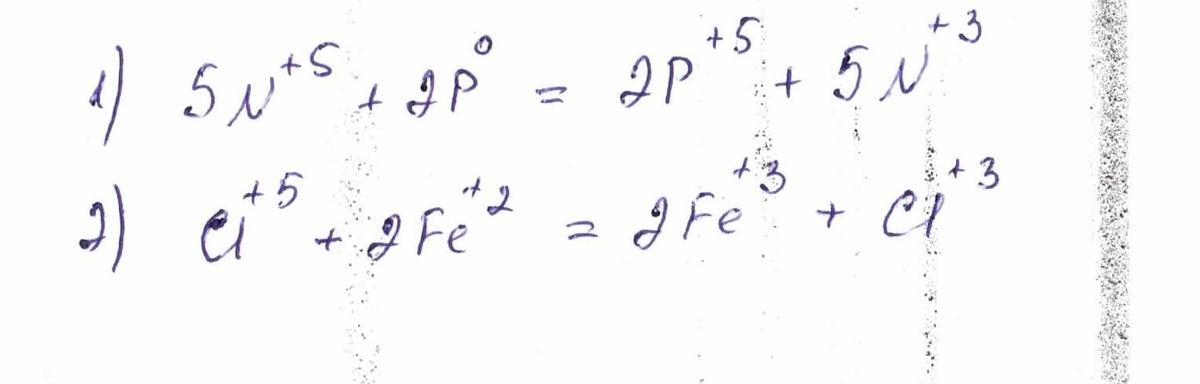 1) 5N⁺⁵ + 2P⁰ = 2P⁺⁵ + 5N⁺³
2) Cl⁺⁵ + 2Fe⁺² = 2Fe⁺³ + Cl⁺³